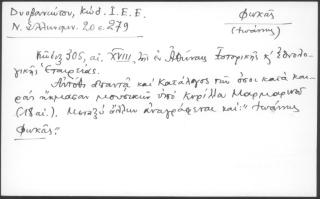 Δυοβουνιώτου, Κώδ. Ι.Ε.Ε.
Ν. Ἑλληνομν. 20 σ. 279
Φωκᾶς
(Ἰωάννης)
Κῶδιξ 305, αἰ. XVIII, τῆς ἐν Ἀθήναις Ἱστορικῆς κ' ἐθνολο-
γικῆς Ἑταιρείας.
Αὐτόθι ἀπαντᾷ καὶ κατάλογος τῶν ὅσοι κατὰ και-
ροὺς ἤκμασαν μουσικῶν ὑπὸ Κυρίλλου Μαρμαρηνοῦ
(18 αἰ.). Μεταξὺ ἄλλων ἀναγράφεται καὶ: "Ἰωάννης
Φωκᾶς".